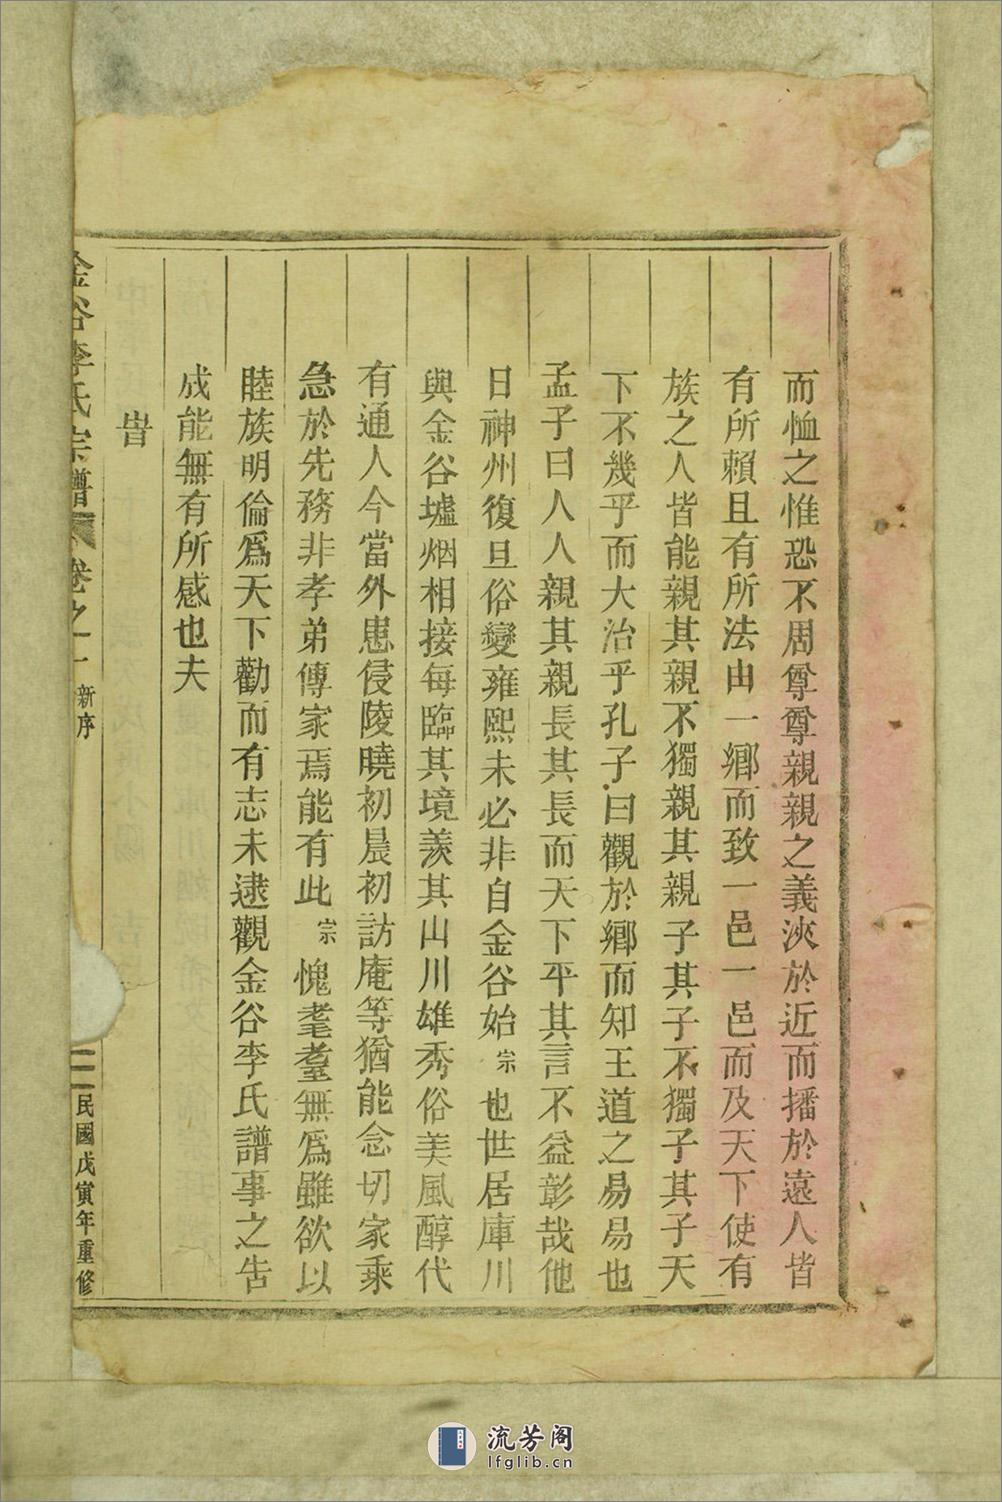 而恤之惟恐不周尊尊親親之義浹於近而播於遠人皆
有所賴且有所法由一鄉而致一邑一邑而及天下使有
族之人皆能親其親不獨親其親子其子不獨子其子天
下不幾乎而大治乎孔子曰觀於鄉而知王道之易易也
孟子曰人人親其親長其長而天下平其言不益彰哉他
日神州復旦俗變雍熙未必非自金谷始宗也世居庫川
與金谷墟烟相接每臨其境羨其山川雄秀俗美風醇代
有通人今當外患侵陵曉初晨初訪庵等猶能念切家乘
急於先務非孝弟傳家焉能有此宗愧耄耋無爲雖欲以
睦族明倫爲天下勸而有志未逮觀金谷李氏譜事之告
成能無有所感也夫
旹
金谷李氏宗譜 卷之一 新序 二 民國戊寅年重修
流芳阁
lfglib.cn